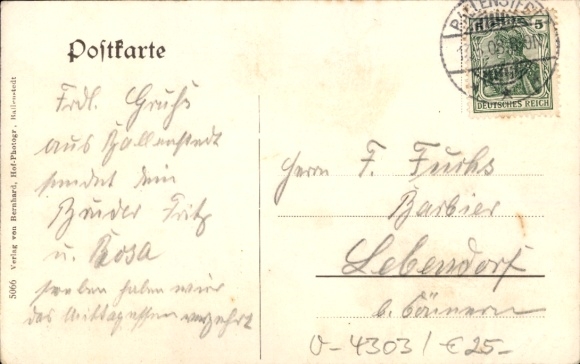 Postkarte
Frdl. Gruß
aus Ballenstedt
sendet dein
Bruder Fritz
u. Rosa
soeben haben wir
das Mittagessen verzehrt
5066 Verlag von Bernhard, Hof-Photogr., Ballenstedt
BALLENSTEDT
5
DEUTSCHES REICH
Herrn F. Fuchs
Barbier
Lebendorf
b. Cönnern
V-4303/€25-